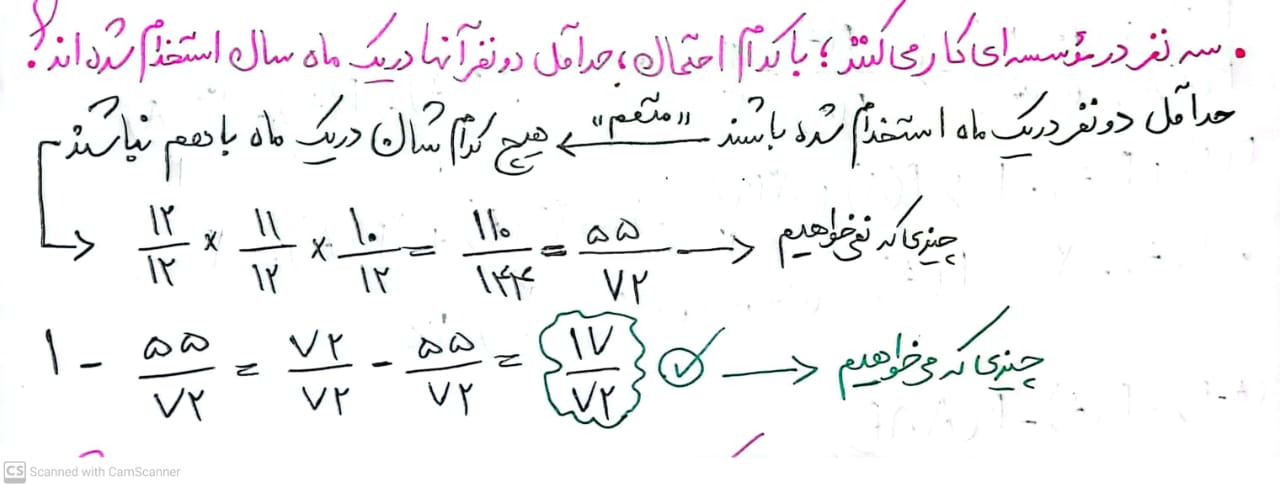 • سه نفر در مؤسسه‌ای کار می‌کنند؛ با کدام احتمال، حداقل دو نفر آنها در یک ماه سال استخدام شده‌اند؟
حداقل دو نفر در یک ماه استخدام شده باشند «متمم» ← هیچ کدام شان در یک ماه با هم نباشند
→ ۱۲/۱۲ × ۱۱/۱۲ × ۱۰/۱۲ = ۱۱۰/۱۴۴ = ۵۵/۷۲ → چیزی که نمی‌خواهیم
۱ - ۵۵/۷۲ = ۷۲/۷۲ - ۵۵/۷۲ = ۱۷/۷۲ ✓ → چیزی که می‌خواهیم
CS Scanned with CamScanner